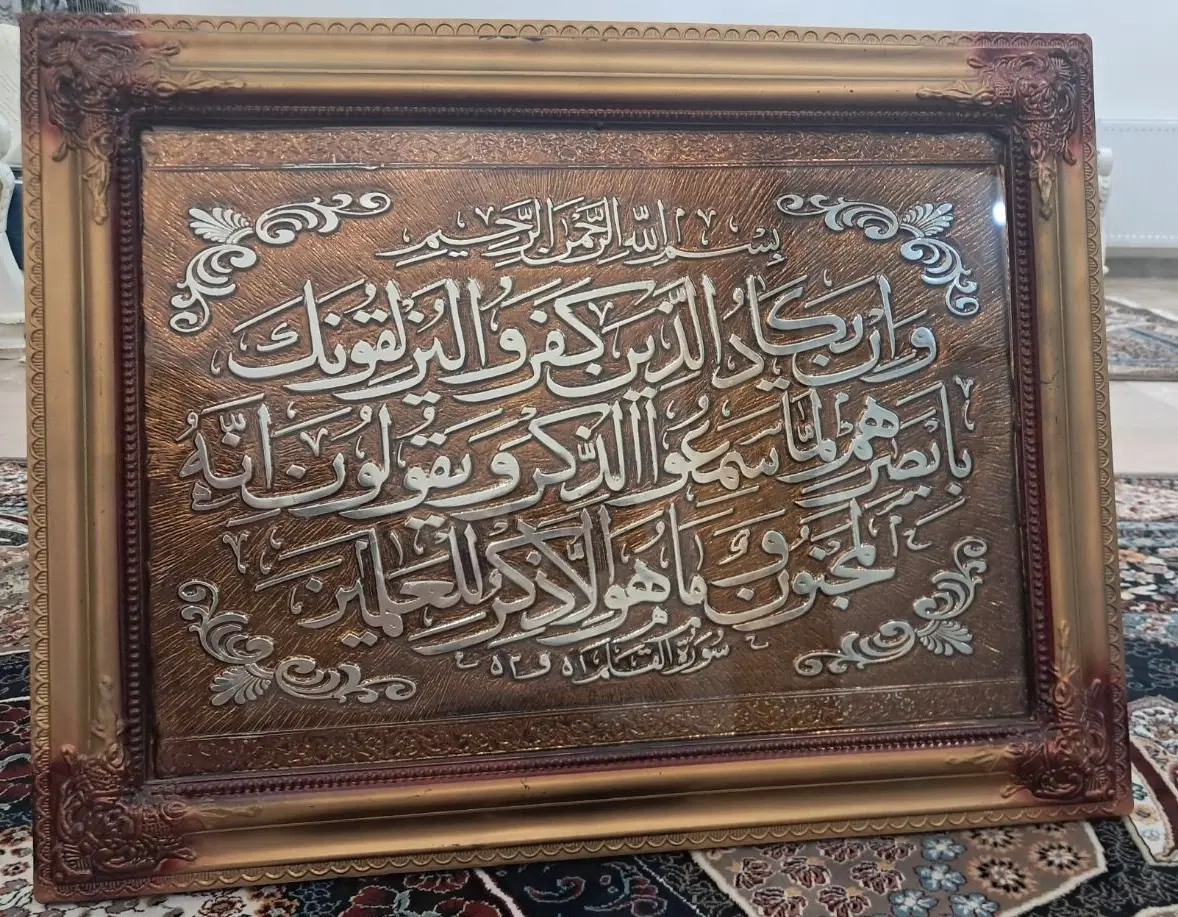 بِسْمِ اللهِ الرَّحْمٰنِ الرَّحِیمِ
وَاِنْ یَكادُ الَّذینَ كَفَرُوا لَیُزْلِقُونَكَ
بِاَبْصارِهِمْ لَمّا سَمِعُوا الذِّكْرَ وَ یَقُولُونَ اِنَّهُ
لَمَجْنُونٌ وَ ما هُوَ اِلّا ذِكْرٌ لِلْعالَمینَ
سُورَة القلم ٥١ و ٥٢